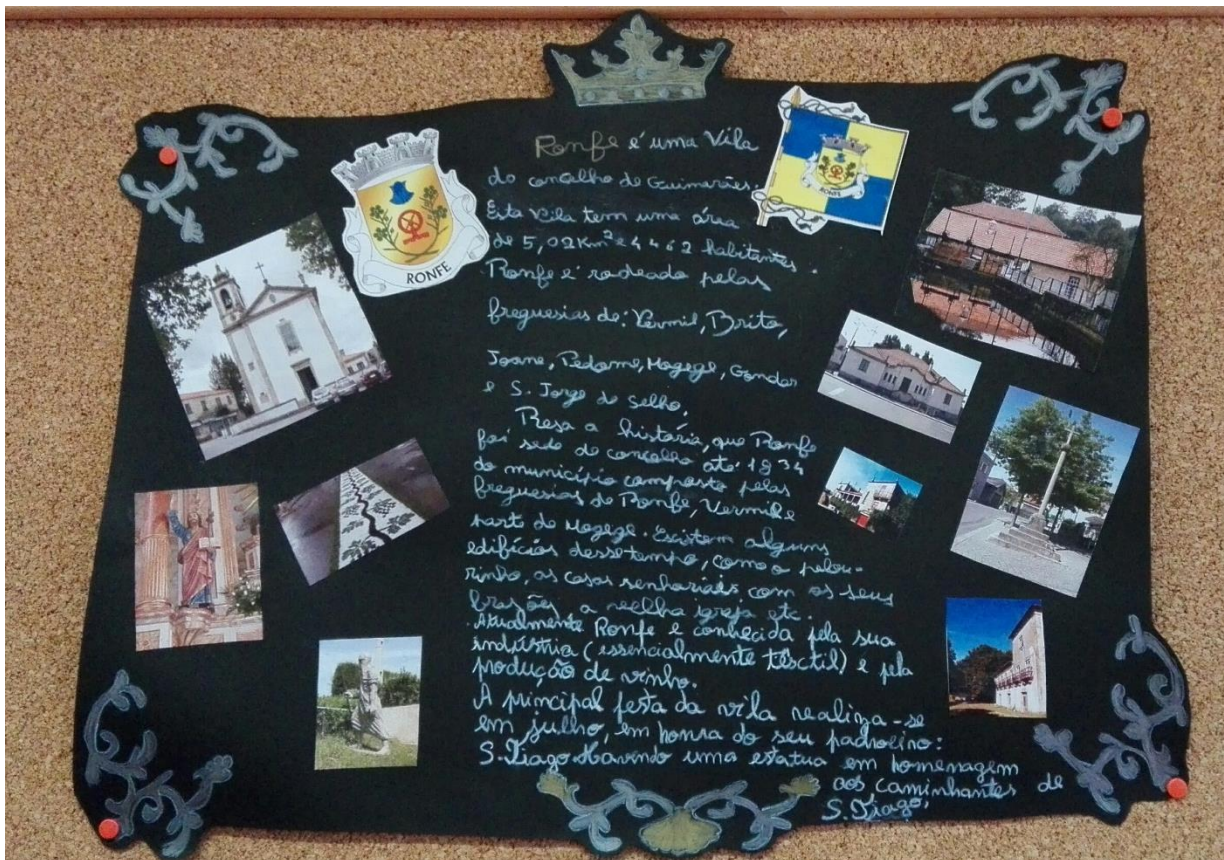 Ronfe é uma Vila
do concelho de Guimarães.
Esta Vila tem uma área
de 5,02Km² e 4462 habitantes.
Ronfe é rodeada pelas
freguesias de: Vermil, Brito,
Joane, Pedome, Mogege, Gondar
e S. Jorge de Selho.
Resa a história, que Ronfe
foi sede de concelho até 1834
do município composto pelas
freguesias de Ronfe, Vermil e
parte de Mogege. Escistem alguns
edifícios desse tempo, como o pelou-
rinho, as casas senhoriais com os seus
brasões, a velha igreja etc.
Atualmente Ronfe é conhecida pela sua
indústria (essencialmente têsctil) e pela
produção de vinho.
A principal festa da vila realiza-se
em julho, em honra do seu padroeiro:
S. Tiago. Havendo uma estatua em homenagem
aos caminhantes de
S. Tiago.
RONFE
RONFE